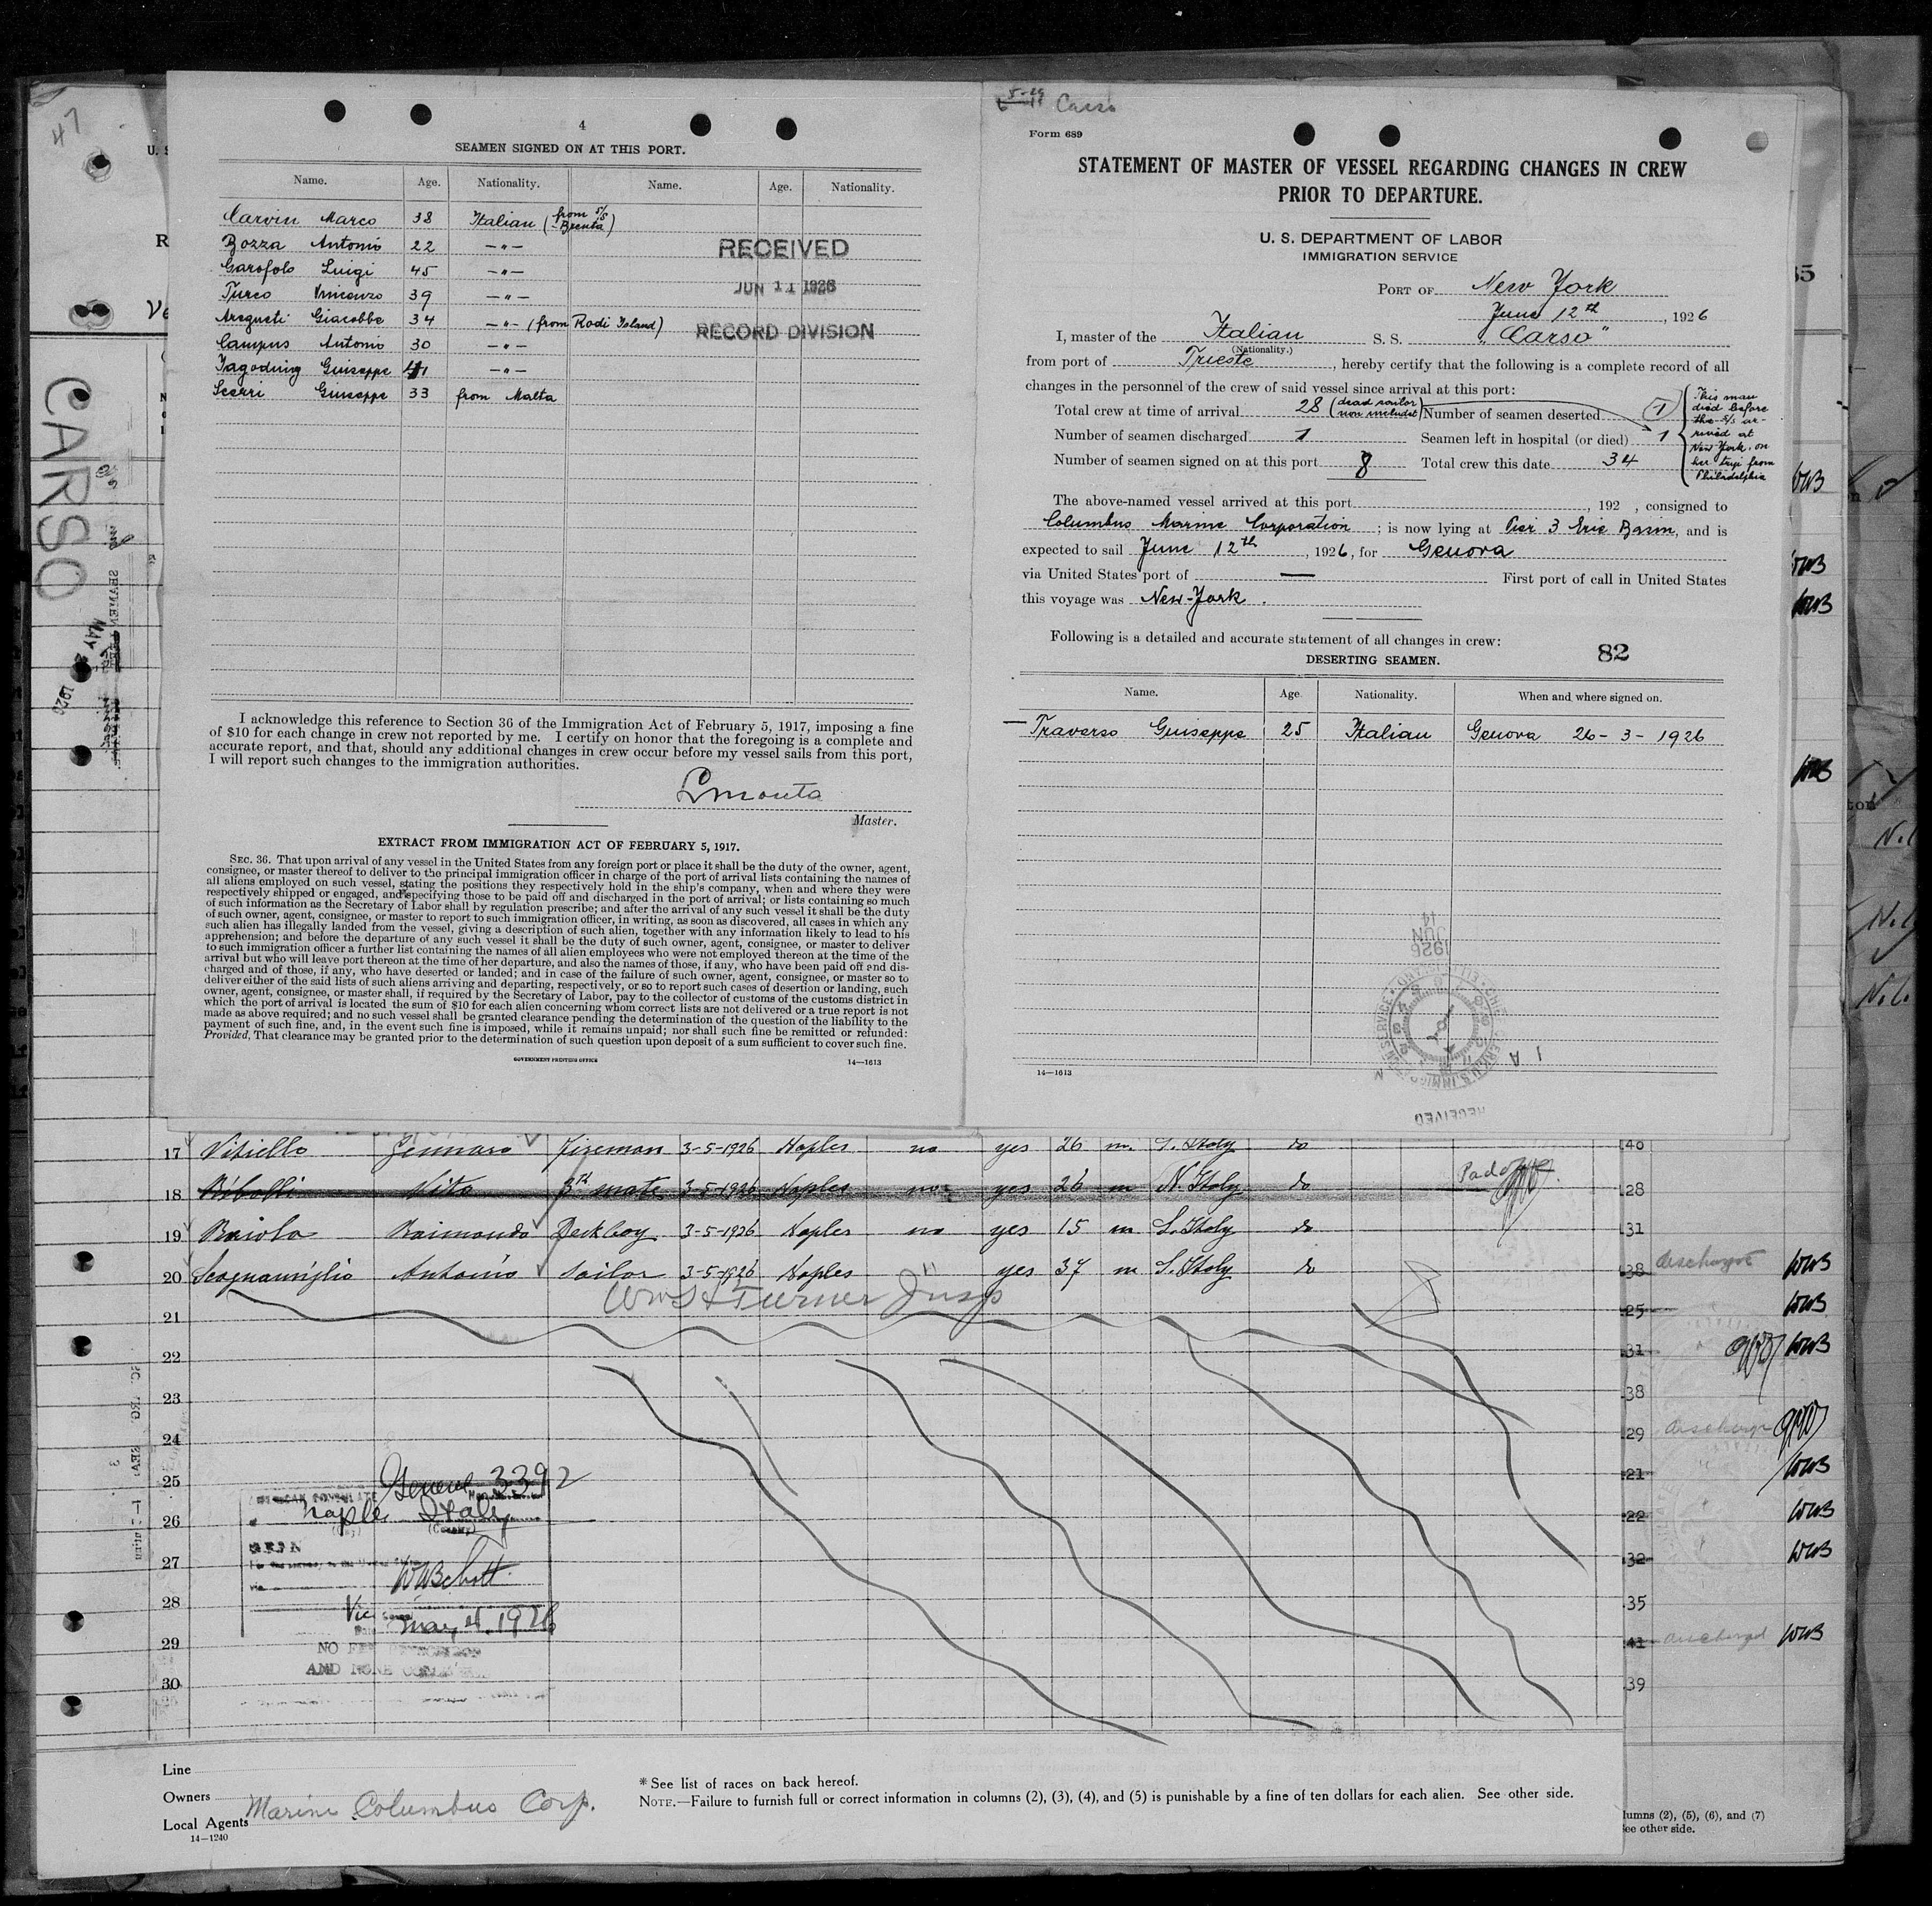 47
CARSO
4
SEAMEN SIGNED ON AT THIS PORT.
Name. Age. Nationality. Name. Age. Nationality.
Carvin Marco 38 Italian (from S/S Brenta)
Bozza Antonio 22 —"—
Garofolo Luigi 45 —"—
Turco Vincenzo 39 —"—
Giacobbe 34 —"— (from Rodi Island)
Campus Antonio 30 —"—
Giuseppe 41 —"—
Scerri Giuseppe 33 from Malta
RECEIVED
JUN 11 1926
RECORD DIVISION
I acknowledge this reference to Section 36 of the Immigration Act of February 5, 1917, imposing a fine
of $10 for each change in crew not reported by me. I certify on honor that the foregoing is a complete and
accurate report, and that, should any additional changes in crew occur before my vessel sails from this port,
I will report such changes to the immigration authorities.
Master.
EXTRACT FROM IMMIGRATION ACT OF FEBRUARY 5, 1917.
SEC. 36. That upon arrival of any vessel in the United States from any foreign port or place it shall be the duty of the owner, agent,
consignee, or master thereof to deliver to the principal immigration officer in charge of the port of arrival lists containing the names of
all aliens employed on such vessel, stating the positions they respectively hold in the ship's company, when and where they were
respectively shipped or engaged, and specifying those to be paid off and discharged in the port of arrival; or lists containing so much
of such information as the Secretary of Labor shall by regulation prescribe; and after the arrival of any such vessel it shall be the duty
of such owner, agent, consignee, or master to report to such immigration officer, in writing, as soon as discovered, all cases in which any
such alien has illegally landed from the vessel, giving a description of such alien, together with any information likely to lead to his
apprehension; and before the departure of any such vessel it shall be the duty of such owner, agent, consignee, or master to deliver
to such immigration officer a further list containing the names of all alien employees who were not employed thereon at the time of the
arrival but who will leave port thereon at the time of her departure, and also the names of those, if any, who have been paid off and dis-
charged and of those, if any, who have deserted or landed; and in case of the failure of such owner, agent, consignee, or master so to
deliver either of the said lists of such aliens arriving and departing, respectively, or so to report such cases of desertion or landing, such
owner, agent, consignee, or master shall, if required by the Secretary of Labor, pay to the collector of customs of the customs district in
which the port of arrival is located the sum of $10 for each alien concerning whom correct lists are not delivered or a true report is not
made as above required; and no such vessel shall be granted clearance pending the determination of the question of the liability to the
payment of such fine, and, in the event such fine is imposed, while it remains unpaid; nor shall such fine be remitted or refunded:
Provided, That clearance may be granted prior to the determination of such question upon deposit of a sum sufficient to cover such fine.
GOVERNMENT PRINTING OFFICE 14—1613
Carso
Form 689
STATEMENT OF MASTER OF VESSEL REGARDING CHANGES IN CREW
PRIOR TO DEPARTURE.
U. S. DEPARTMENT OF LABOR
IMMIGRATION SERVICE
PORT OF New York
June 12th, 1926
I, master of the Italian S. S. "Carso"
(Nationality.)
from port of Trieste, hereby certify that the following is a complete record of all
changes in the personnel of the crew of said vessel since arrival at this port:
Total crew at time of arrival 28 (dead sailor non includet) Number of seamen deserted 1
Number of seamen discharged 1 Seamen left in hospital (or died) 1
Number of seamen signed on at this port 8 Total crew this date 34
This man
died before
the S/S ar-
rived at
New York, on
her trip from
Philadelphia
The above-named vessel arrived at this port , 192 , consigned to
Columbus Marine Corporation; is now lying at Pier 3 Erie Basin, and is
expected to sail June 12th, 1926, for Genova
via United States port of — First port of call in United States
this voyage was New-York.
Following is a detailed and accurate statement of all changes in crew:
82
DESERTING SEAMEN.
Name. Age. Nationality. When and where signed on.
Traverso Guiseppe 25 Italian Genova 26-3-1926
14 JUN 1926
RECEIVED
14—1613
17 Vitiello Gennaro Fireman 3-5-1926 Naples no yes 26 m. S. Italy do
18 Ribolli Vito 3rd mate 3-5-1926 Naples no yes 26 m N. Italy do
19 Raiola Raimondo Deckboy 3-5-1926 Naples no yes 15 m S. Italy do
20 Scognamiglio Antonio Sailor 3-5-1926 Naples " yes 37 m S. Italy do
Turner Insp
21
22
23
24
25
26
27
28
29
30
General 3392
Naples Italy
(City) (Country)
Vice
May 4. 1926
NO FEE
AND NONE
28
31
38 discharged WWB
25 WWB
31 WWB
38
29
21 WWB
22 WWB
32 WWB
35
41 discharged WWB
39
Line
Owners
Local Agents Marine Columbus Corp.
14—1240
* See list of races on back hereof.
NOTE.—Failure to furnish full or correct information in columns (2), (3), (4), and (5) is punishable by a fine of ten dollars for each alien. See other side.
lumns (2), (5), (6), and (7)
ee other side.